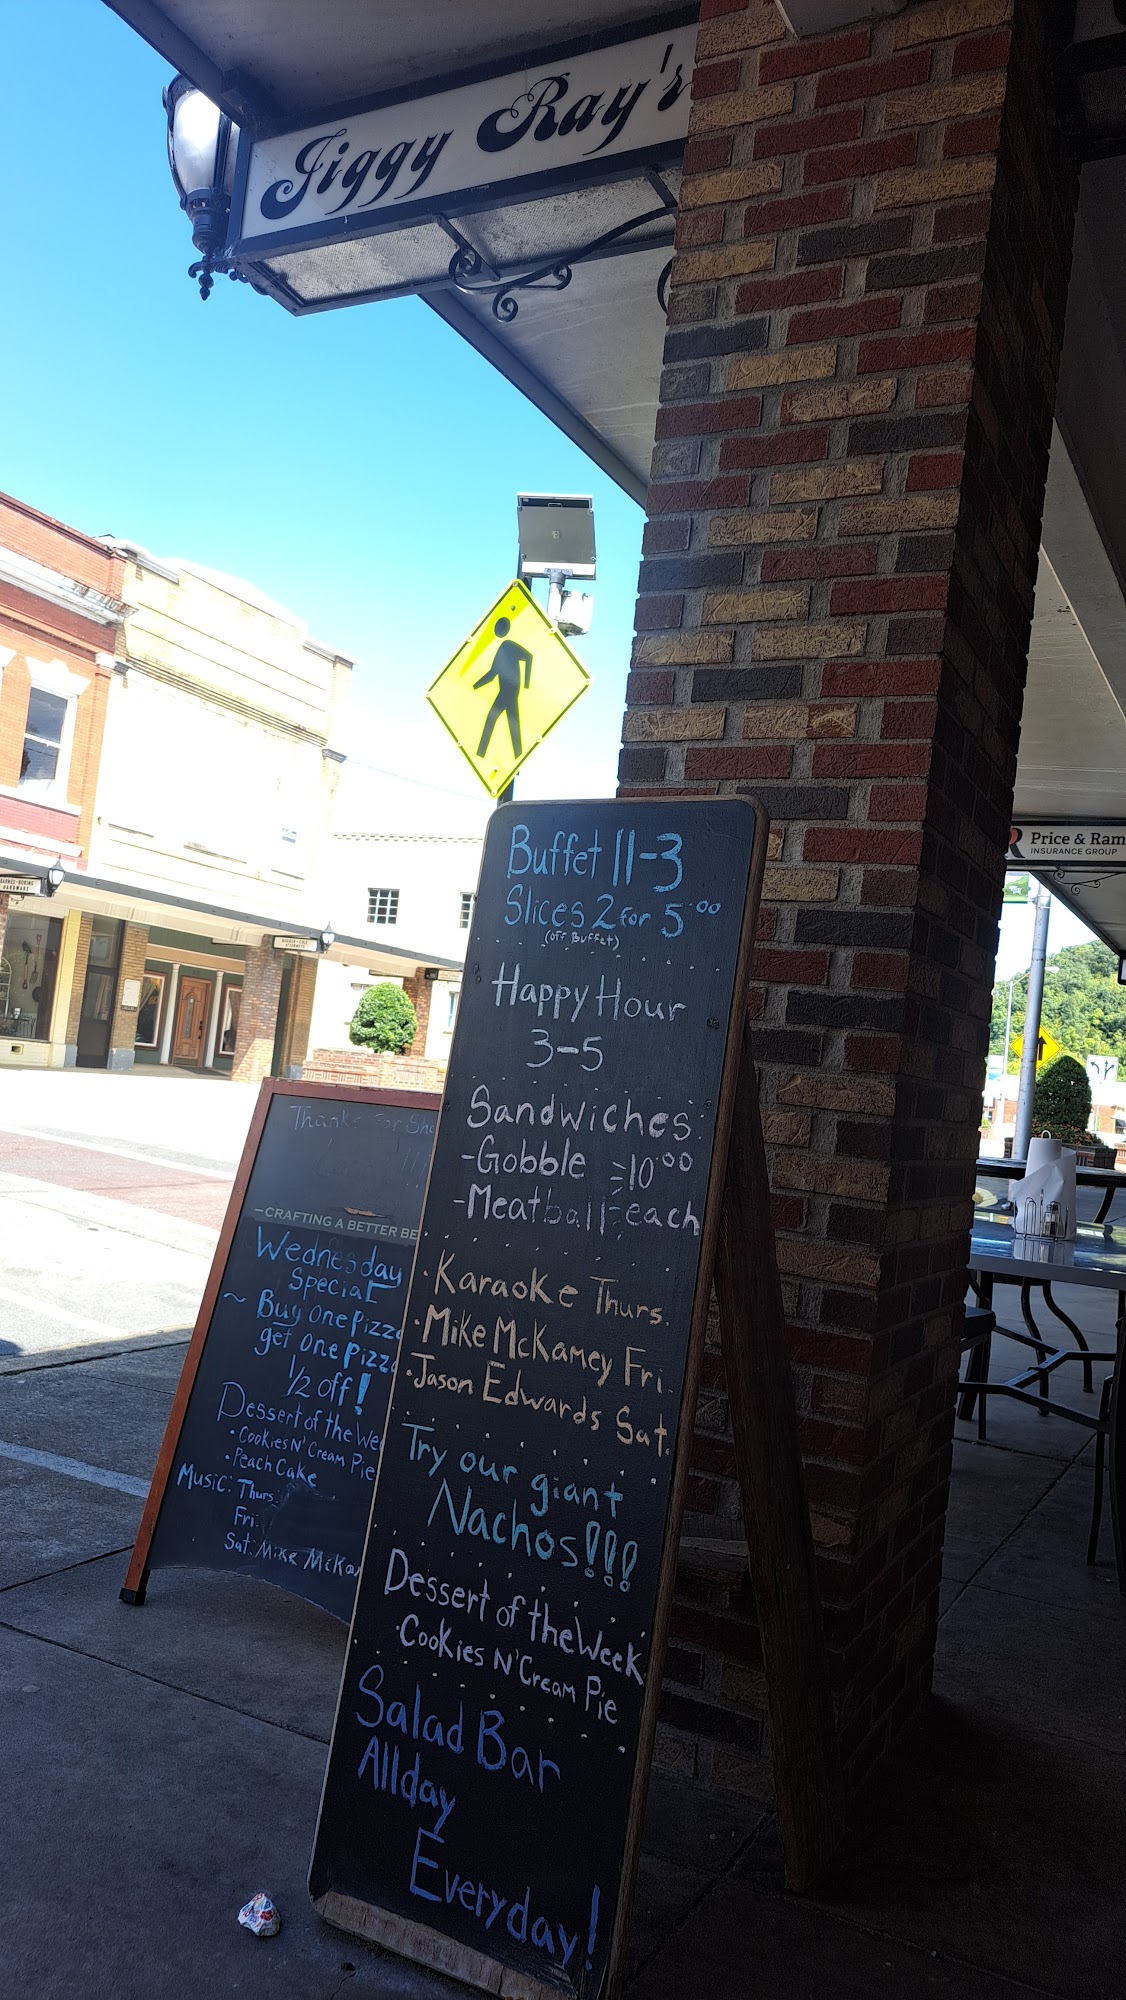 Jiggy Ray's
Buffet 11-3
Slices 2 for 5.00
(off Buffet)
Happy Hour
3-5
Sandwiches:
-Gobble =10.00
-Meatball=each
·Karaoke Thurs.
·Mike McKamey Fri.
·Jason Edwards Sat.
Try our giant
Nachos!!!
Dessert of the Week
·Cookies N' Cream Pie
Salad Bar
Allday
Everyday!
Thanks for
-CRAFTING A BETTER
Wednesday
Special
~ Buy one Pizza
get one Pizza
1/2 off!
Dessert of the
·Cookies N' Cream Pie
·Peach Cake
Music: Thurs:
Fri:
Sat: Mike
Price & Ram
INSURANCE GROUP
HARDWARE
ATTORNEYS